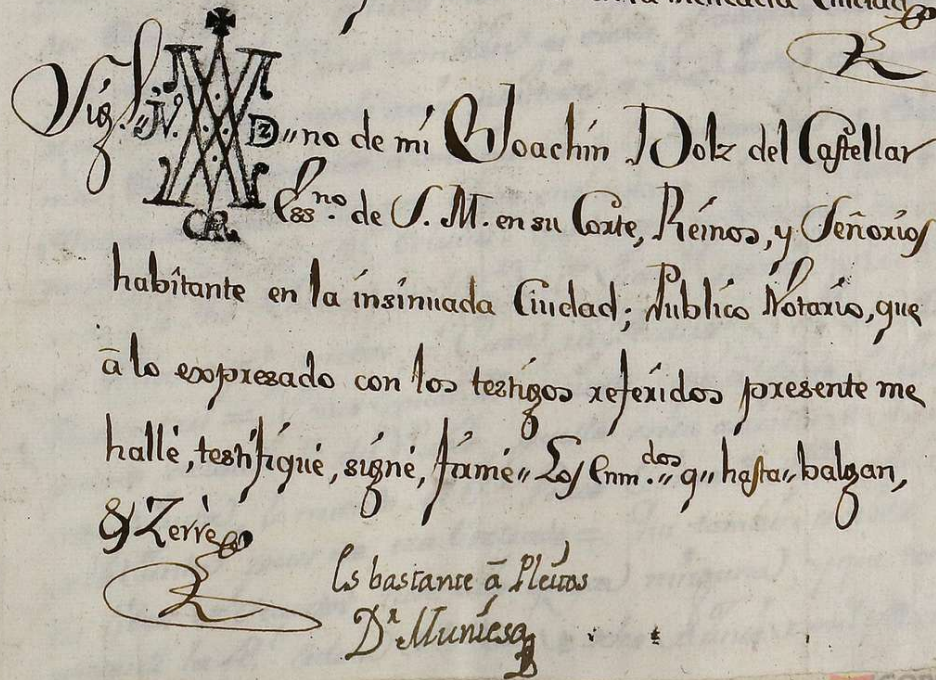 Ciudad
Sig. N. D no de mi Joachin Dolz del Castellar
Ess.no de S. M. en su Corte, Reinos, y Señorios
habitante en la insinuada Ciudad; Publico Notario, que
â lo expresado con los testigos referidos presente me
hallè, testifiquè, signè, firmè " Los Enm.dos " q " hasta " balgan,
& Zerrè
Es bastante â Pleitos
D.r Muniesa